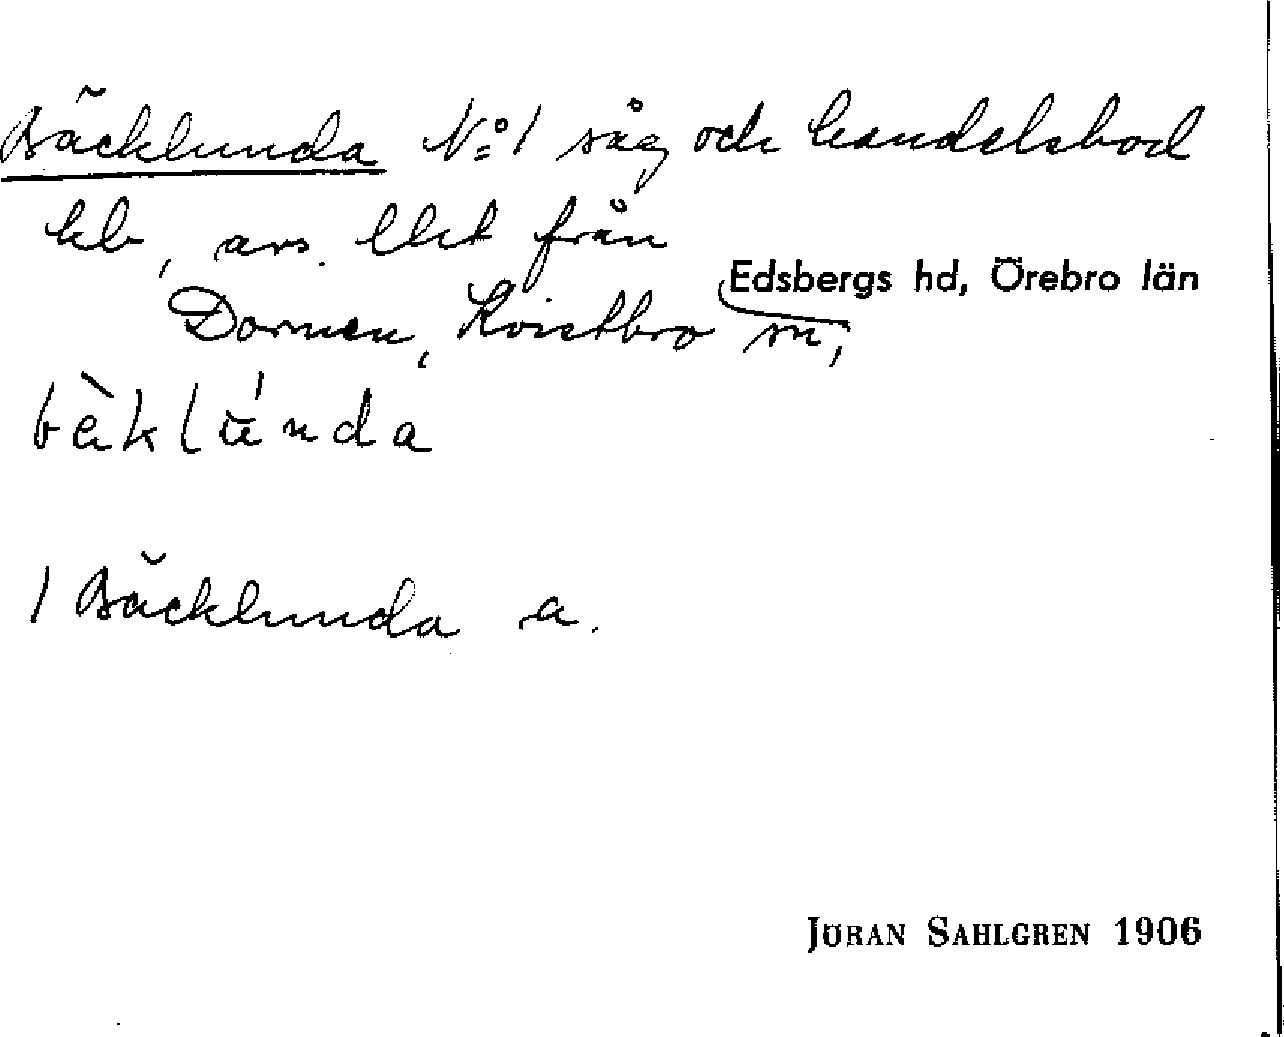 Bäcklunda N:o 1 såg och handelsbod
hb, avs. från
Edsbergs hd, Örebro län
Dormen, Kvistbro sn,
bäklunda
1 Bäcklunda a.
JÖRAN SAHLGREN 1906